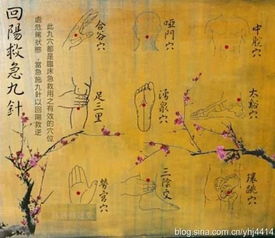 回陽救急九針
此九穴都是臨床急救用之有效的穴位
狀態，當急施九針以回陽救逆
合谷穴
啞門穴
中脘穴
足三里
湧泉穴
太谿穴
勞宮穴
三陰交
環跳穴
blog.sina.com.cn/yhj4414